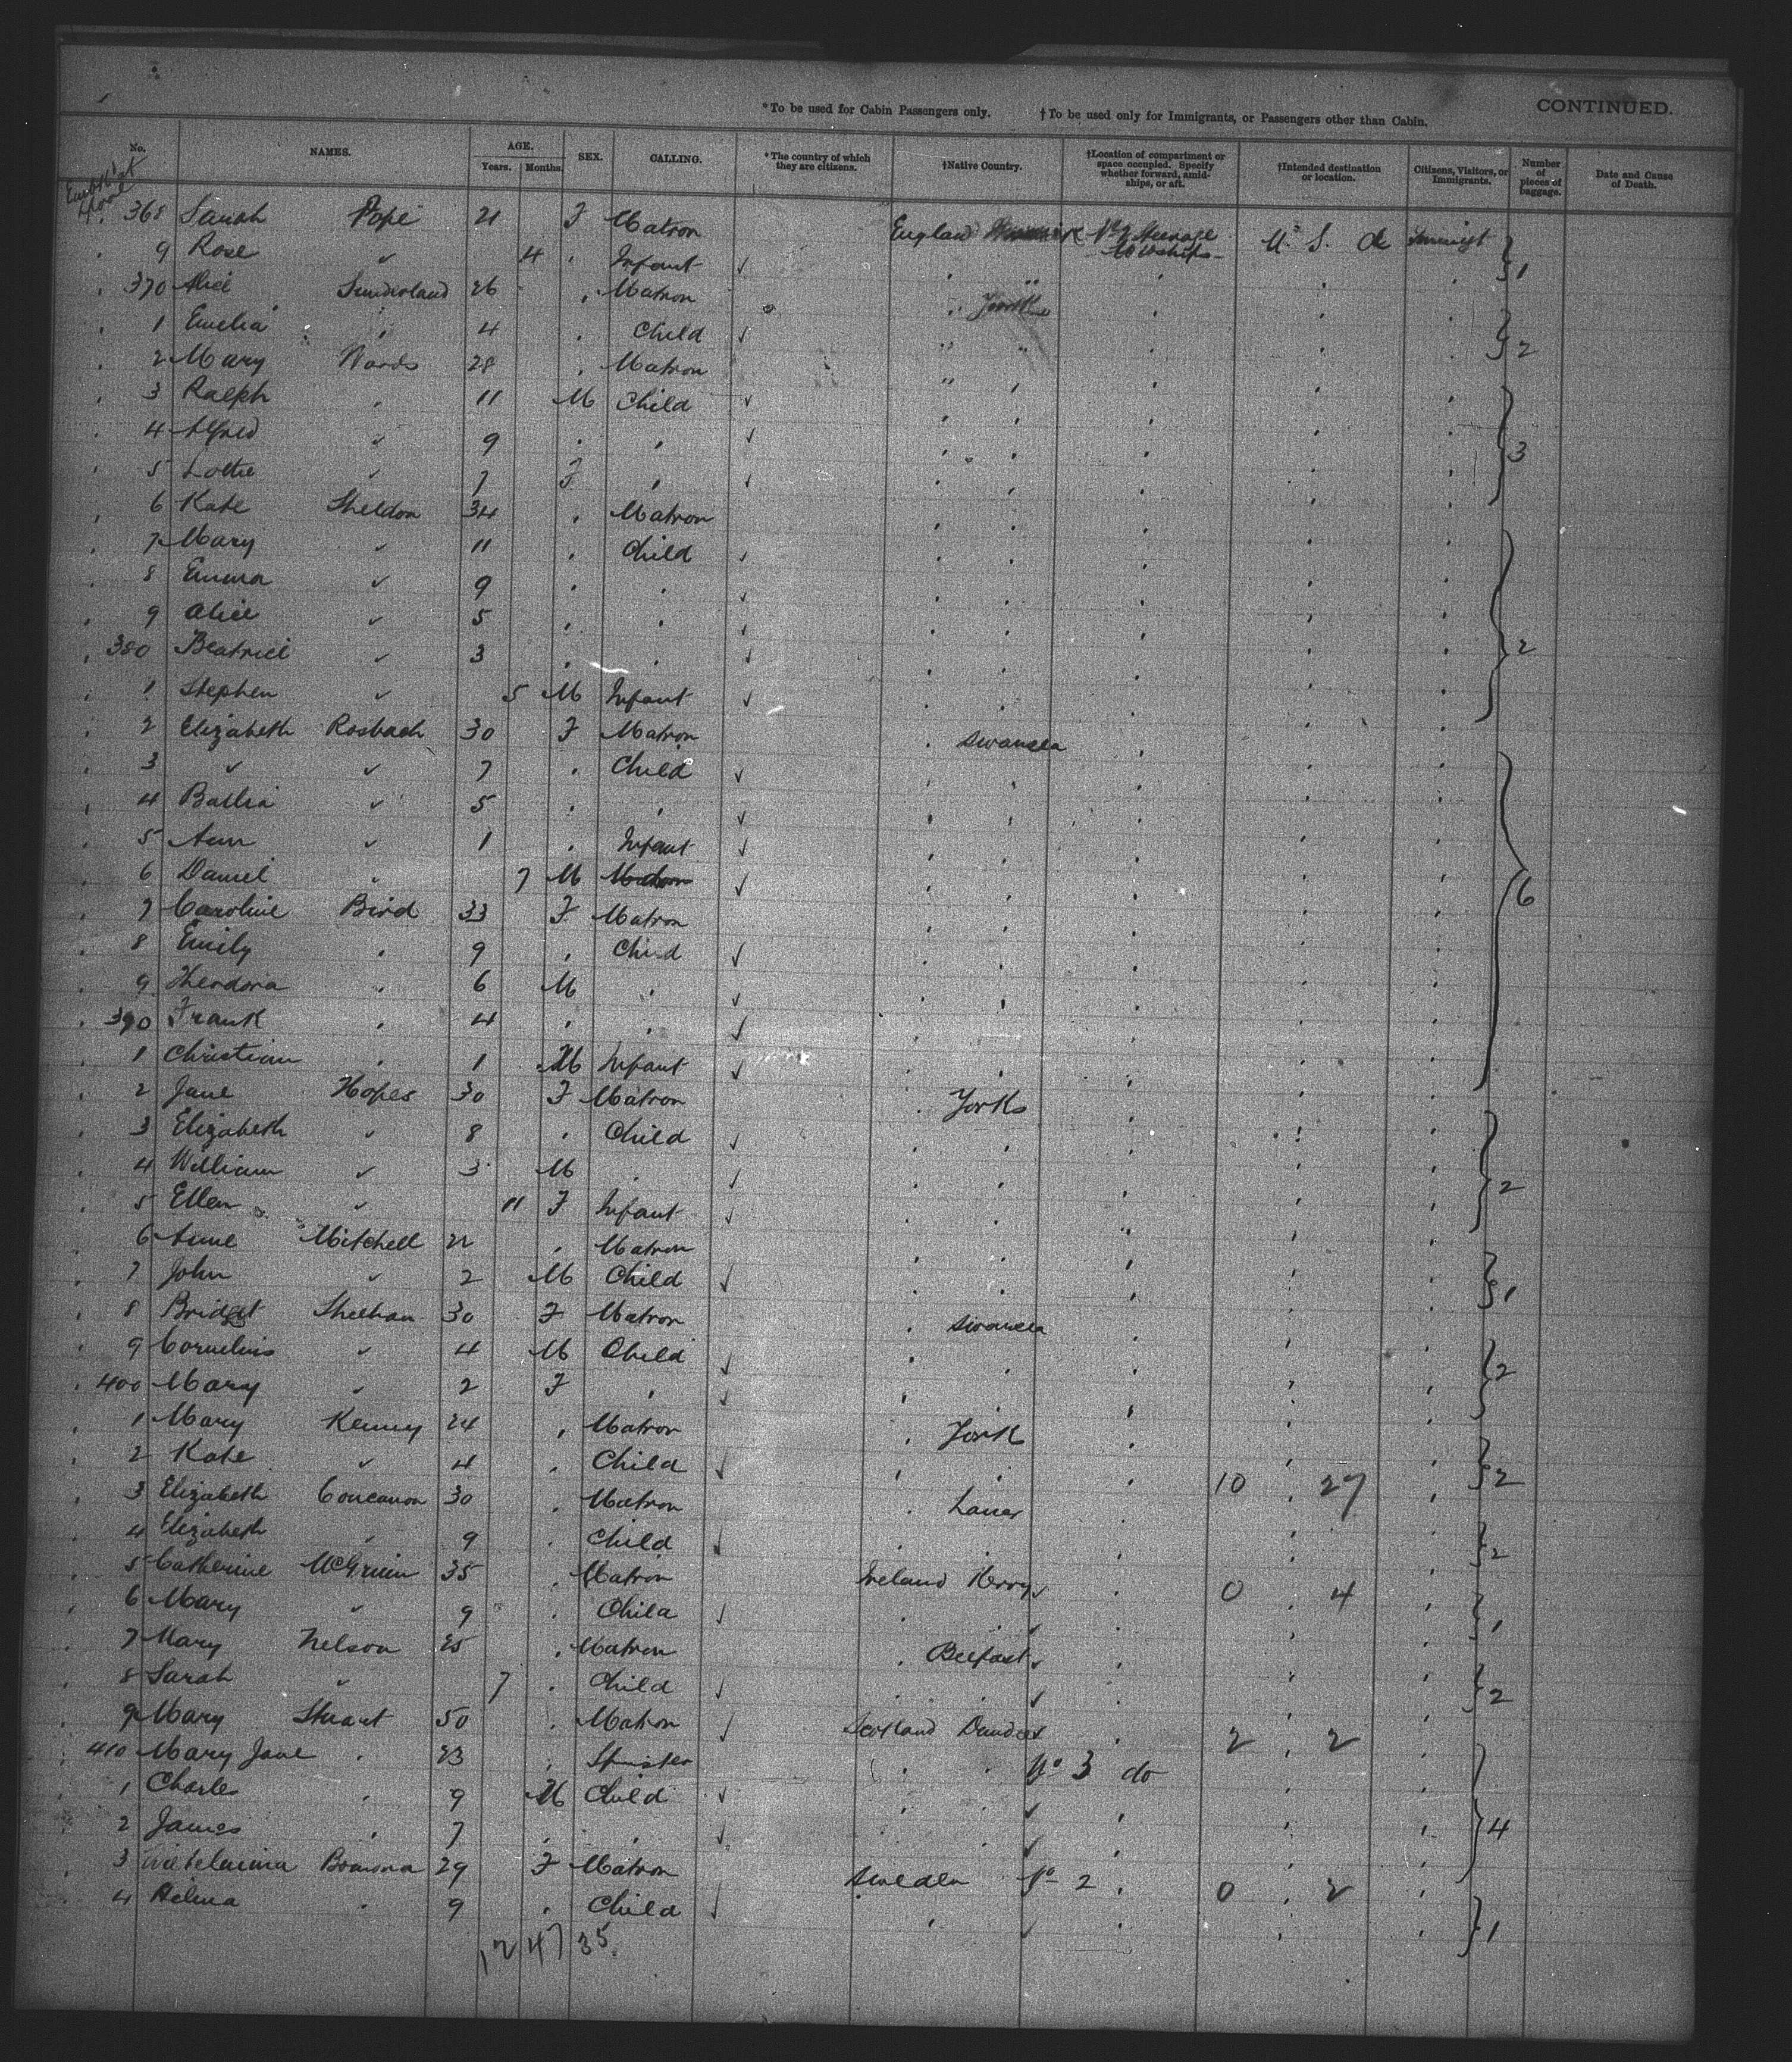 *To be used for Cabin Passengers only. †To be used only for Immigrants, or Passengers other than Cabin. CONTINUED.
No. NAMES. AGE. Years. Months. SEX. CALLING. *The country of which they are citizens. †Native Country. †Location of compartment or space occupied. Specify whether forward, amidships, or aft. †Intended destination or location. Citizens, Visitors, or Immigrants. Number of pieces of baggage. Date and Cause of Death.
368 Sarah Pope 21 F Matron England No 2 Steerage U. S. of
9 Rose " 4 " Infant ✓ 1
370 Alice Sunderland 26 " Matron " York
1 Emelia " 4 " Child ✓ 2
2 Mary Wards 28 " Matron
3 Ralph " 11 M Child ✓
4 Alfred " 9 " " ✓ 3
5 Lottie " 7 F " ✓
6 Kate Sheldon 34 " Matron
7 Mary " 11 " Child ✓
8 Emma " 9 " " ✓
9 Alice " 5 " " ✓
380 Beatrice " 3 " " ✓ 2
1 Stephen " 5 M Infant ✓
2 Elizabeth Rosbach 30 F Matron " Swansea
3 " " 7 " Child ✓
4 " 5 " " ✓
5 Ann " 1 " Infant ✓
6 Daniel " 7 M Matron ✓ 6
7 Caroline Bird 33 F Matron
8 Emily " 9 " Child ✓
9 Theodora " 6 M " ✓
390 Frank " 4 " " ✓
1 Christian " 1 M Infant ✓
2 Jane Hopes 30 F Matron " Yorks
3 Elizabeth " 8 " Child ✓
4 William " 3 M " ✓ 2
5 Ellen " 11 F Infant ✓
6 Anne Mitchell 22 " Matron
7 John " 2 M Child ✓ 1
8 Bridget Sheehan 30 F Matron " Swansea
9 Cornelius " 4 M Child ✓ 2
400 Mary " 2 F " ✓
1 Mary Kenny 24 " Matron " York
2 Kate " 4 " Child ✓ 10 27 2
3 Elizabeth Concanon 30 " Matron " Lancs
4 Elizabeth " 9 " Child ✓ 2
5 Catherine 35 " Matron Ireland Kerry ✓ 0 4
6 Mary " 9 " Child ✓ 1
7 Mary Nelson 25 " Matron " Belfast ✓
8 Sarah " 7 " Child ✓ 2
9 Mary Stuart 50 " Matron ✓ Scotland Dundee 2 2
410 Mary Jane " 23 " Spinster No 3 do
1 Charles " 9 M Child ✓
2 James " 7 " " ✓ 4
3 Wilhelmina 29 F Matron Sweden No 2 " 0 2
4 Helma " 9 " Child ✓ 1
12 47 35